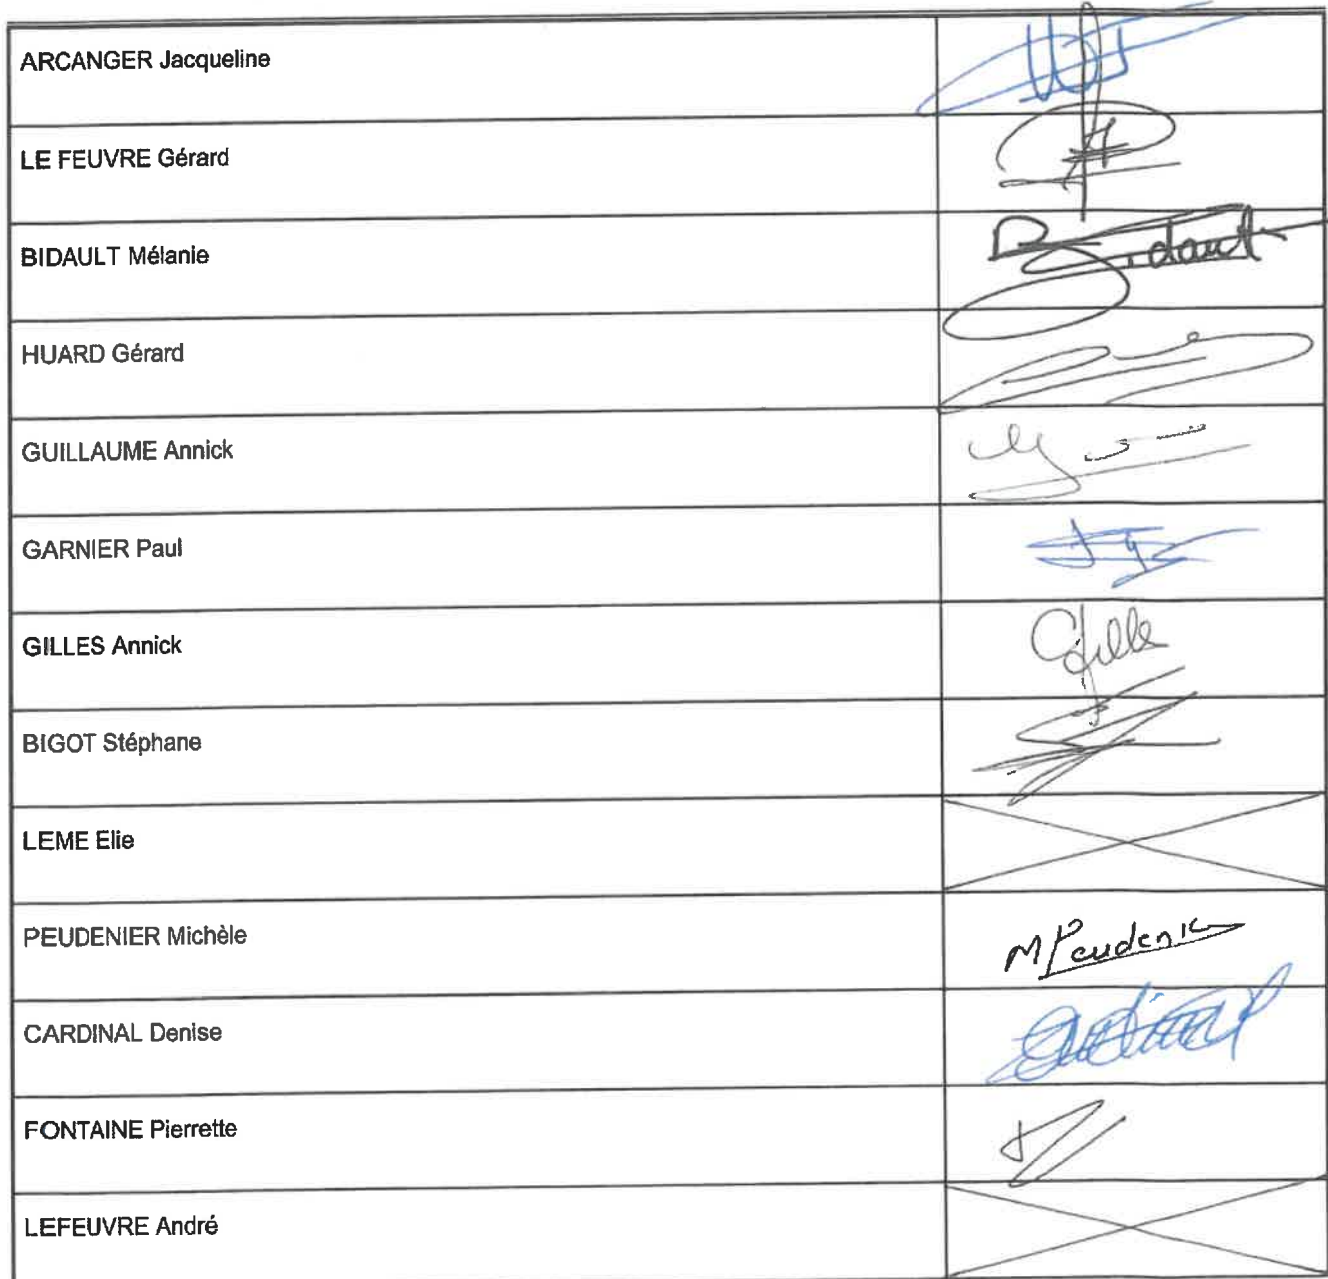 ARCANGER Jacqueline
LE FEUVRE Gérard
BIDAULT Mélanie
Bidault
HUARD Gérard
GUILLAUME Annick
GARNIER Paul
GILLES Annick
Gille
BIGOT Stéphane
LEME Elie
PEUDENIER Michèle
M Peudenier
CARDINAL Denise
Cardinal
FONTAINE Pierrette
LEFEUVRE André